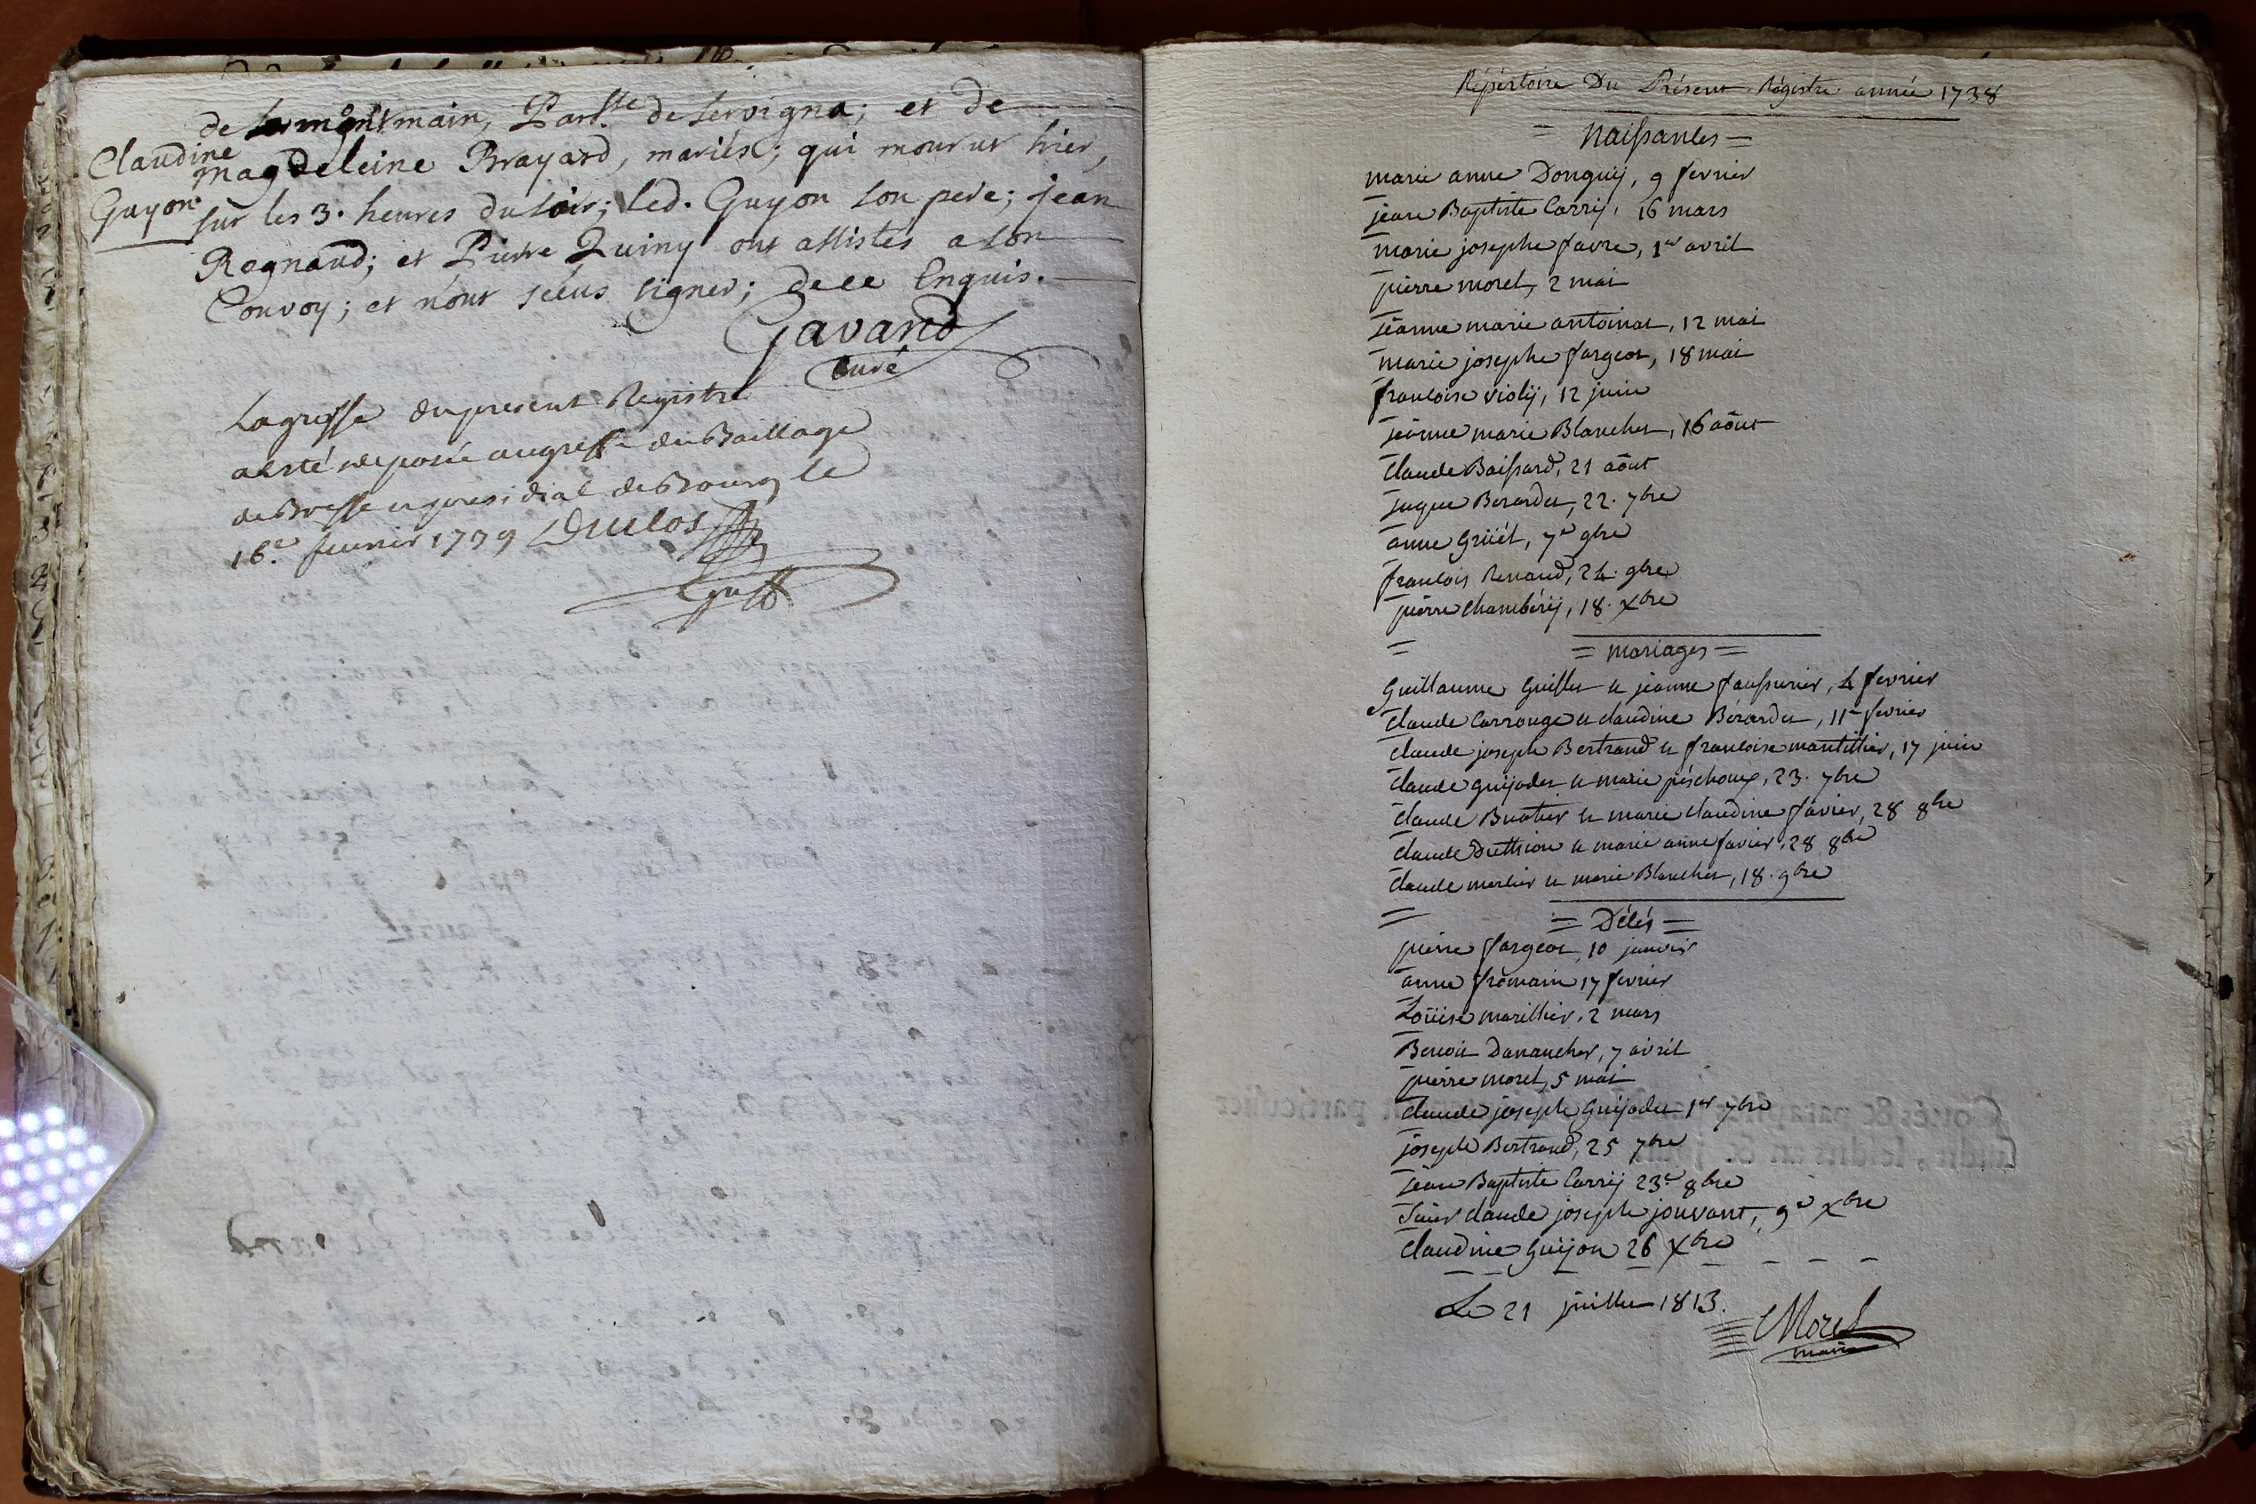 de montmain, Par.sse de Servigna; et de
Claudine
magdeleine Brayard, mariés; qui mourut hier,
Guyon.
sur les 3. heures du soir; led. Guyon son pere; jean
Rognand; et Pierre Quiny ont assistés a son
Convoy; et n'ont sçeus signer; de ce Enquis.
Gavand
curé
La grosse du present Registre
a esté deposée au greffe du Baillage
de Bresse et presidial de Bourg le
16.e feuvrier 1739 Duclos
Greff
Répértoire Du Présent Régistre année 1738
= Naissances =
marie anne Donguy, 9 fevrier
jean Baptiste Carry, 16 mars
marie josephe favre, 1er avril
pierre morel, 2 mai
jeanne marie antoinat, 12 mai
marie josephe fargeot, 18 mai
francoise violy, 12 juin
jeanne marie Blanchet, 16 août
Claude Boissard, 21 août
Berardet, 22. 7bre
anne Grüét, 7e 9bre
francois Renaud, 24. 9bre
pierre Chambéry, 18. Xbre
= mariages =
Guillaume Guillet et jeanne faussurier, 4 fevrier
Claude Carronge et claudine Bérardet, 11e fevrier
claude joseph Bertrand et francoise mantillier, 17 juin
Claude guÿadet et marie péschoux, 23. 7bre
Claude Buatier et marie claudine favier, 28 8bre
Claude et marie anne favier, 28 8bre
Claude merlier et marie Blanchet, 18. 9bre
= Décés =
pierre fargeot, 10 janvier
anne fromain 17 fevrier
Loüise marillier, 2 mars
Benoit Danancher, 7 avril
pierre morel, 5 mai
claude joseph Guÿadet 1er 7bre
joseph Bertrand, 25 7bre
jean Baptiste Carry 23e 8bre
Sieur claude joseph jouvant, 9e Xbre
Claudine Guÿon 26 Xbre
Le 21 juillet 1813.
Morel
maire